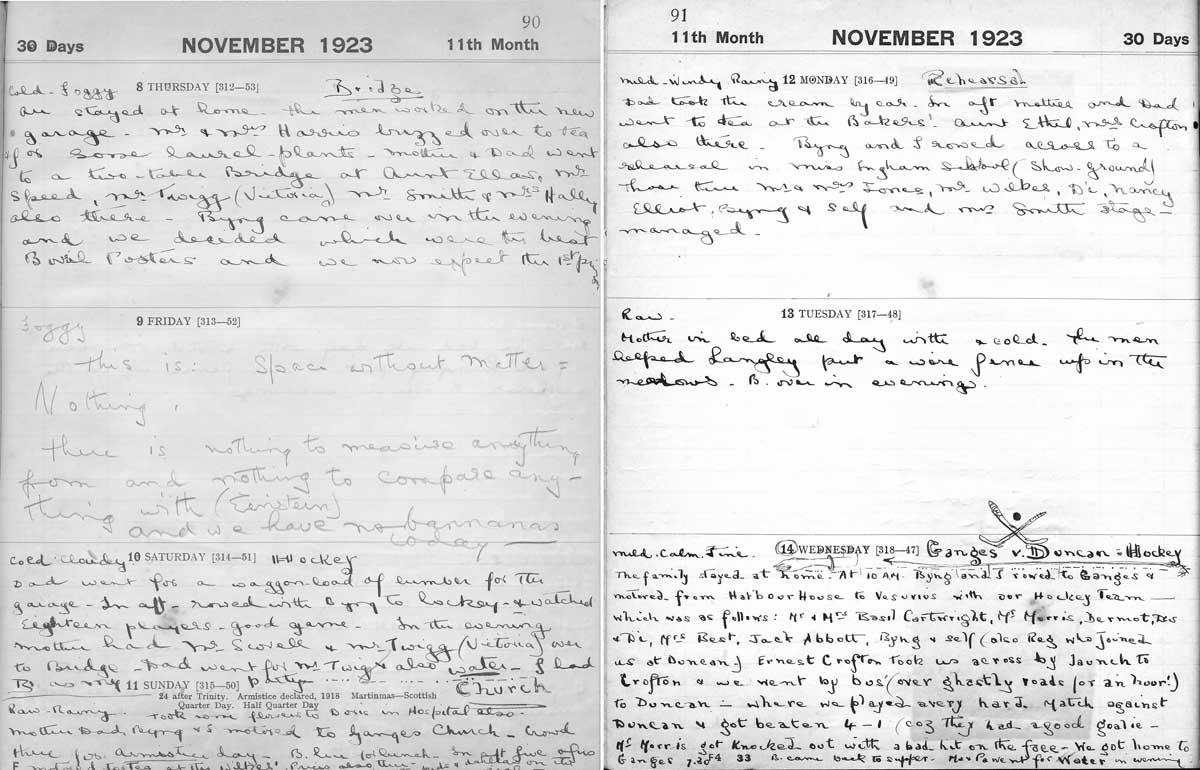 90
30 Days NOVEMBER 1923 11th Month
Cold - Foggy 8 THURSDAY [312—53] Bridge
All stayed at home - The men worked on the new
garage - Mr & Mrs Harris buzzed over to tea
for some laurel-plants - Mother & Dad went
to a two-table Bridge at Aunt Ella's, Mr
Speed, Mr Twigg (Victoria) Mr Smith & Mrs Halley
also there - Byng came over in the evening
and we decided which were the best
Bovril Posters and we now expect the 1st
Foggy 9 FRIDAY [313—52]
This is: Space without Matter =
Nothing.
There is nothing to measure anything
from and nothing to compare any-
thing with (Einstein)
and we have no bannanas
today —
Cold cloudy 10 SATURDAY [314—51] Hockey
Dad went for a waggon-load of lumber for the
garage - In aft - rowed with Byng to hockey - & watched
Eighteen players - good game - In the evening
mother had Mr Scovell & Mr Twigg (Victoria) over
to Bridge - Dad went for Mr Twigg & also water - I had
B. 11 SUNDAY [315—50] Church
24 after Trinity. Armistice declared, 1918 Martinmas—Scottish
Quarter Day. Half Quarter Day
Raw - Rainy. Took some flowers to Doris in Hospital also.
Mother Dad, Byng & S motored to Ganges Church - Crowd
there for Armistice day - B. here to lunch. In aft
91
11th Month NOVEMBER 1923 30 Days
Mild - Windy Rainy 12 MONDAY [316—49] Rehearsal
Dad took the cream by car. In aft mother and Dad
went to tea at the Bakers'. Aunt Ethel, Mrs Crofton
also there - Byng and I rowed across to a
rehearsal in Miss Ingham School (Show-ground)
Those there Mr & Mrs Jones, Mr Wilkes, Di, Nancy
Elliot, Byng & self and Mrs Smith stage-
managed -
Raw - 13 TUESDAY [317—48]
Mother in bed all day with a cold - The men
helped Langley put a wire fence up in the
meadows - B. over in evening.
Mild. Calm. Fine. 14 WEDNESDAY [318—47] Ganges v. Duncan - Hockey
The family stayed at home - At 10 AM. Byng and I rowed to Ganges &
motored from Harbour House to Vesuvius with our Hockey Team —
which was as follows: Mr & Mrs Basil Cartwright, Mr Morris, Dermot, Des
& Di, Mrs Best, Jack Abbott, Byng & self (also Reg who joined
us at Duncan) Ernest Crofton took us across by launch to
Crofton & we went by bus (over ghastly roads for an hour!)
to Duncan - where we played a very hard match against
Duncan & got beaten 4-1 (coz they had a good goalie -
Mr Morris got knocked out with a bad hit on the face - We got home to
Ganges 7.30 B. came back to supper. Went for Water in evening